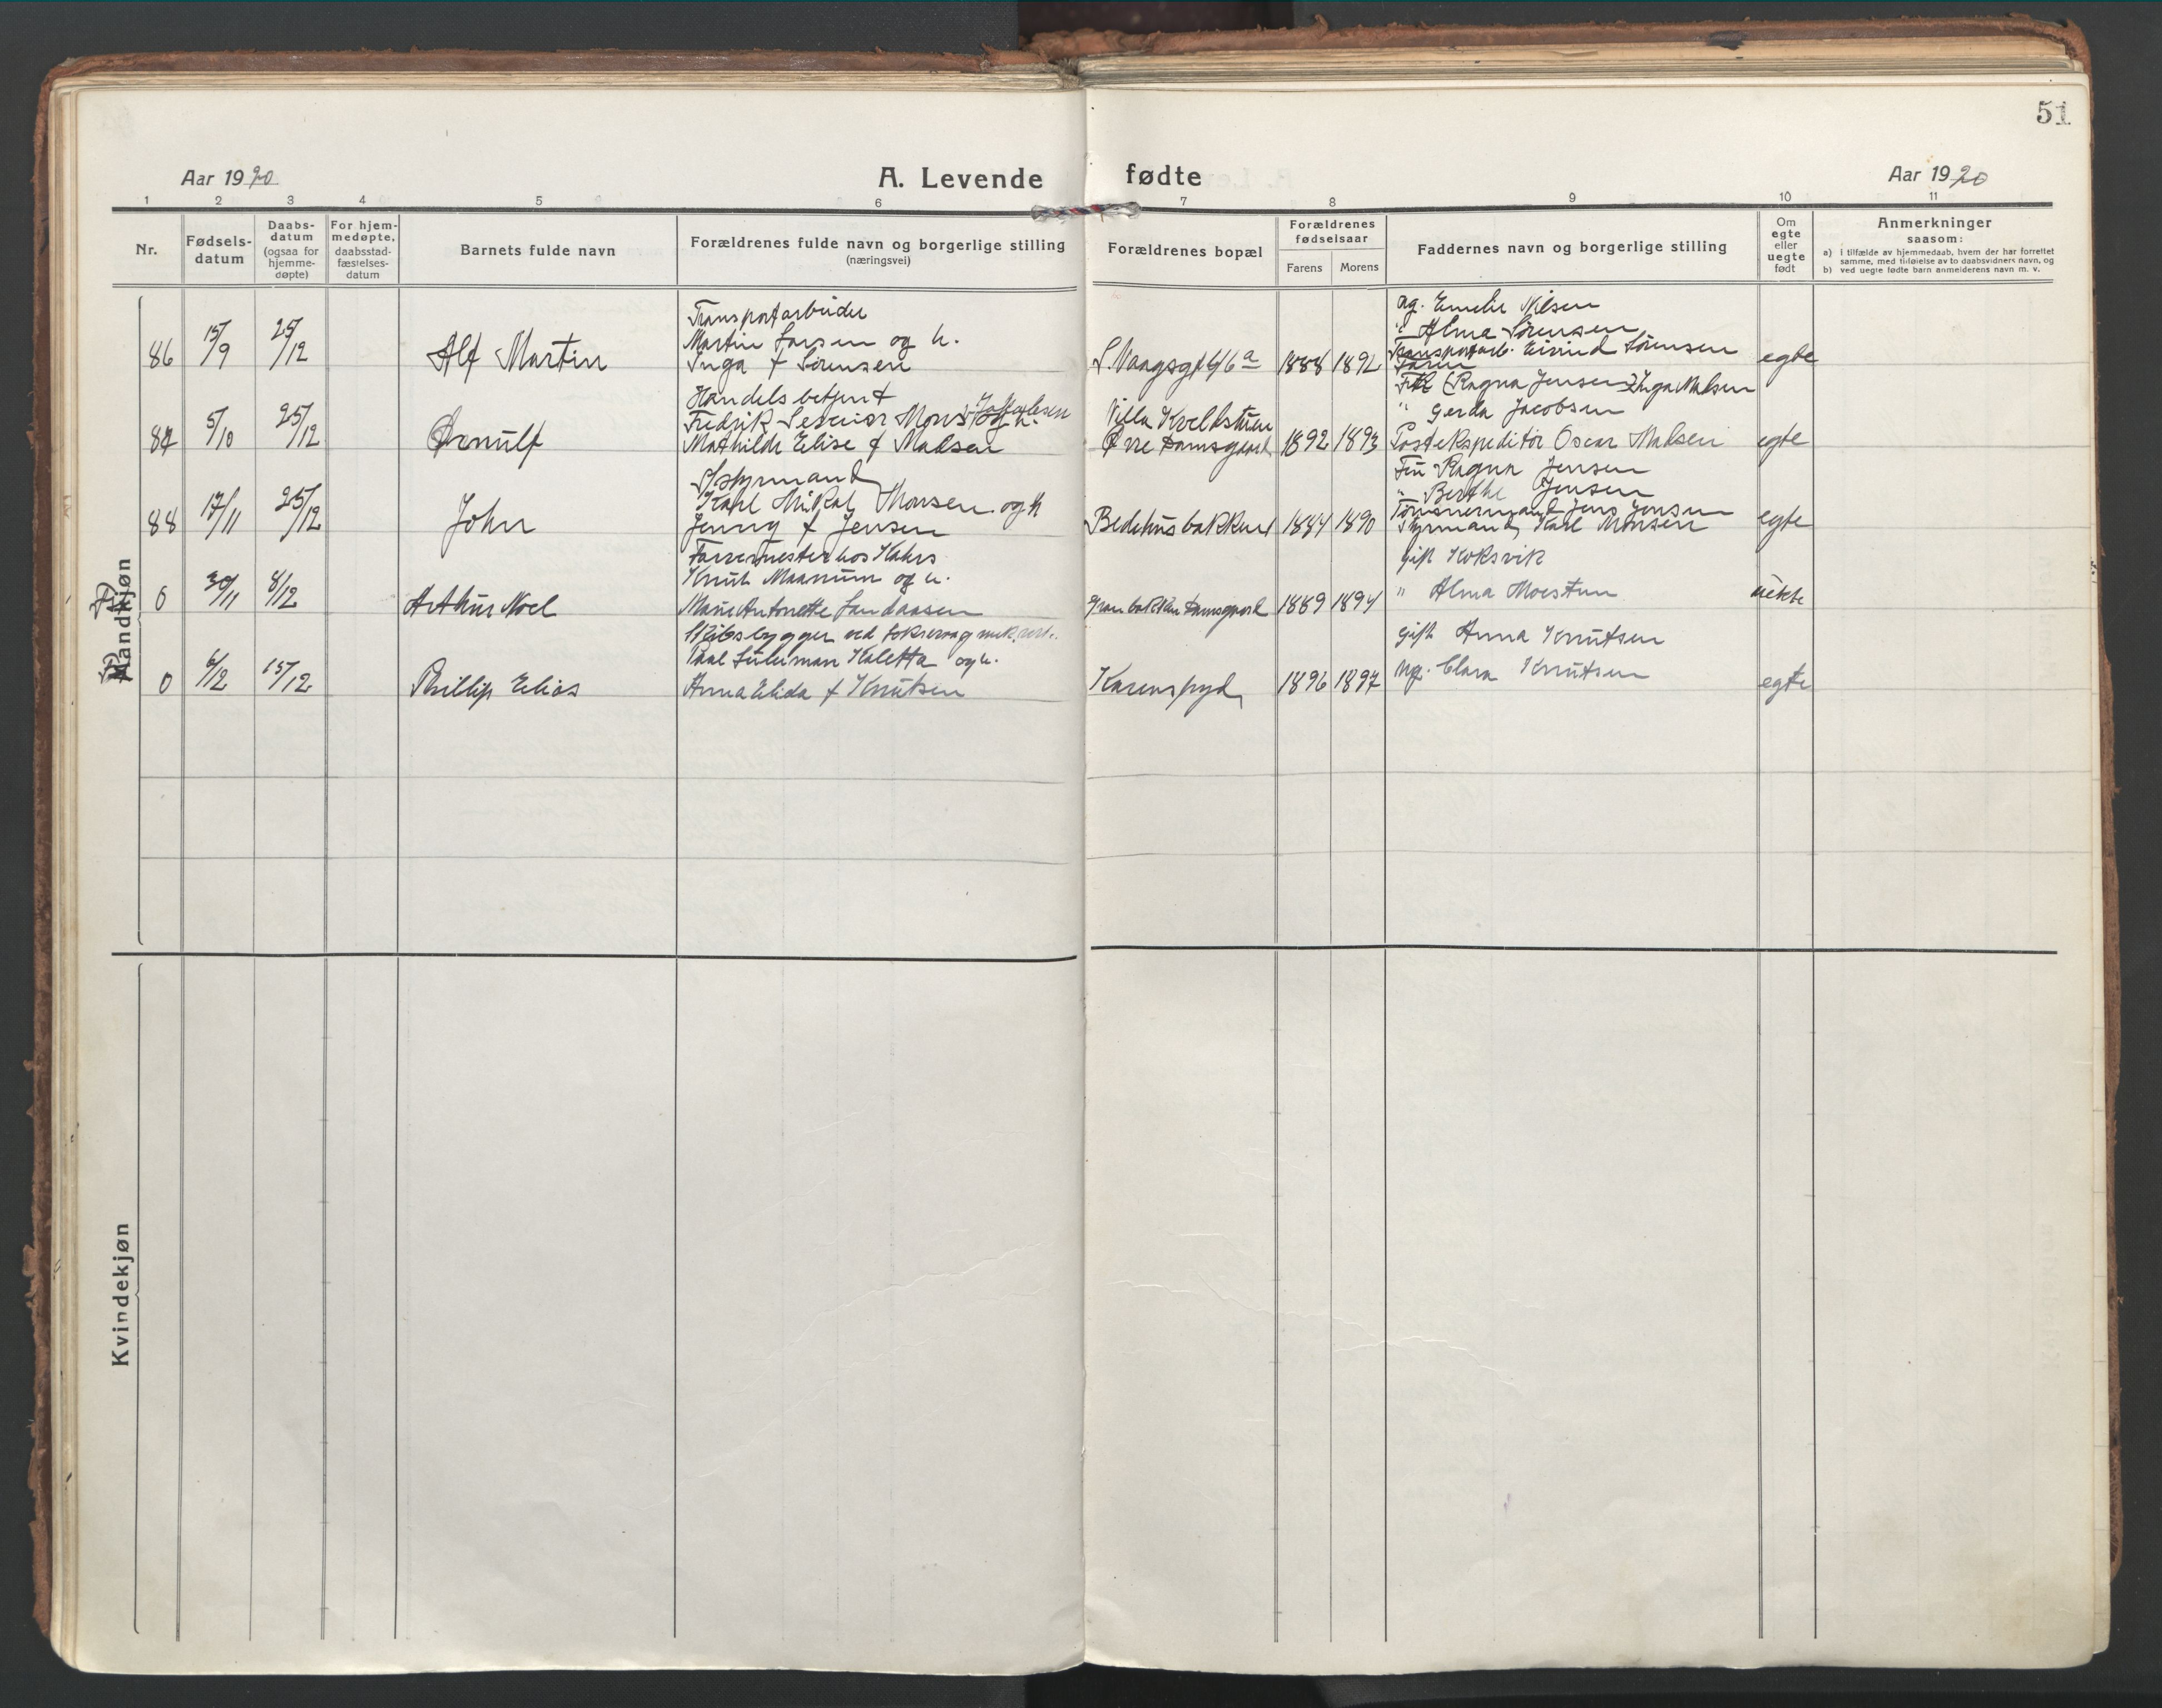 51
Aar 1920
A. Levende fødte
Aar 1920
1 2 3 4 5 6 7 8 9 10 11
Nr.
Fødsels-
datum
Daabs-
datum
(ogsaa for
hjemme-
døpte)
For hjem-
medøpte,
daabsstad-
fæstelses-
datum
Barnets fulde navn
Forældrenes fulde navn og borgerlige stilling
(næringsvei)
Forældrenes bopæl
Forældrenes
fødselsaar
Farens
Morens
Faddernes navn og borgerlige stilling
Om
egte
eller
uegte
født
Anmerkninger
saasom:
a) i tilfælde av hjemmedaab, hvem der har forrettet
samme, med tilføielse av to daabsvidners navn, og
b) ved uegte fødte barn anmelderens navn m. v.
Mandkjøn
86 15/9 25/12 Alf Martin
Transportarbeider
Martin Larsen og h.
Inga f Sørensen
1888 1892
ug. Emelie Nilsen
" Alma Sørensen
Transportarb. Eivind Sørensen
Faren
egte
87 5/10 25/12 Ørnulf
Handelsbetjent
Fredrik Severior Mons Jakobsen og h.
Mathilde Elise f Madsen
Villa Kveldstuen
Øvre Damsgaard
1892 1893
Frk (Ragna Jensen) Inga Madsen
" Gerda Jacobsen
Postekspeditør Oscar Madsen
egte
88 17/11 25/12 John
Styrmand
Karl Mikal Monsen og h
Jenny f Jensen
Bedehusbakken
1884 1890
Frk Ragna Jensen
" Berthe Jensen
Tømmermand Jens Jensen
Styrmand Karl Monsen
egte
0 30/11 8/12 Arthur Noel
Farvermester hos Kahrs
Knut Maanum og h.
Marie Antonette Landaasen
Granbakken Damsgaard
1889 1894
gift Koksvik
" Alma Moestun
uekte
0 6/12 15/12 Phillip Elias
Skibsbygger ved Laksevaag mek. verk.
Paal Suleiman Kaletta og h.
Anna Elida f Knutsen
Karenspyd
1896 1897
gift Anna Knutsen
ug. Clara Knutsen
egte
Kvindekjøn